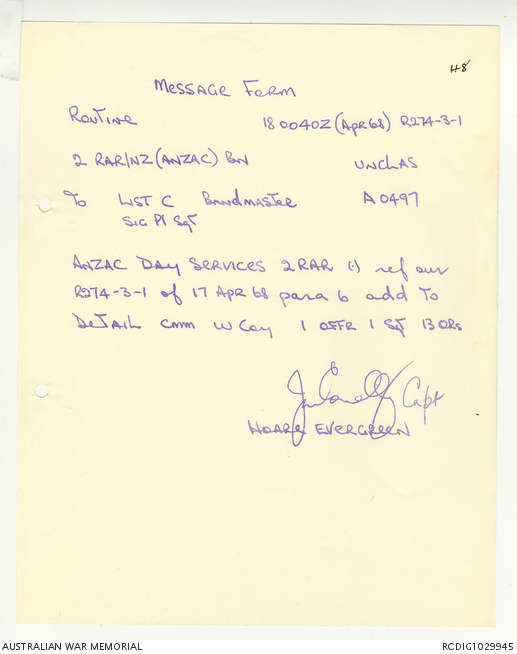 48
Message Form
Routine 180040Z (Apr 68) R274-3-1
2 RAR/NZ (ANZAC) BN UNCLAS
To LIST C Bandmaster A0497
SIG Pl Sgt
ANZAC DAY SERVICES 2RAR (:) ref our
R274-3-1 of 17 APR 68 para 6 add to
DETAIL cmm W Coy 1 OFFR 1 Sgt 13 ORs
Capt
HOARE EVERGREEN
AUSTRALIAN WAR MEMORIAL RCDIG1029945